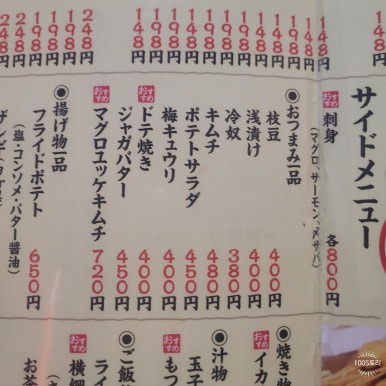 148円
148円
198円
198円
248円
198円
198円
248円
サイドメニュー
おすすめ 刺身 各800円
(マグロ、サーモン、〆サバ)
◉おつまみ一品
枝豆 400円
浅漬け 400円
冷奴 380円
キムチ 400円
ポテトサラダ 480円
梅キュウリ 400円
おすすめ ドテ焼き 400円
ジャガバター 450円
おすすめ マグロユッケキムチ 720円
◉揚げ物一品
フライドポテト 650円
(塩・コンソメ・バター醤油)
ザンギ
◉焼き物
おすすめ イカ
◉汁物
玉子
おすすめ もつ
◉ご飯
ライ
おすすめ 横綱
お茶
100S토리